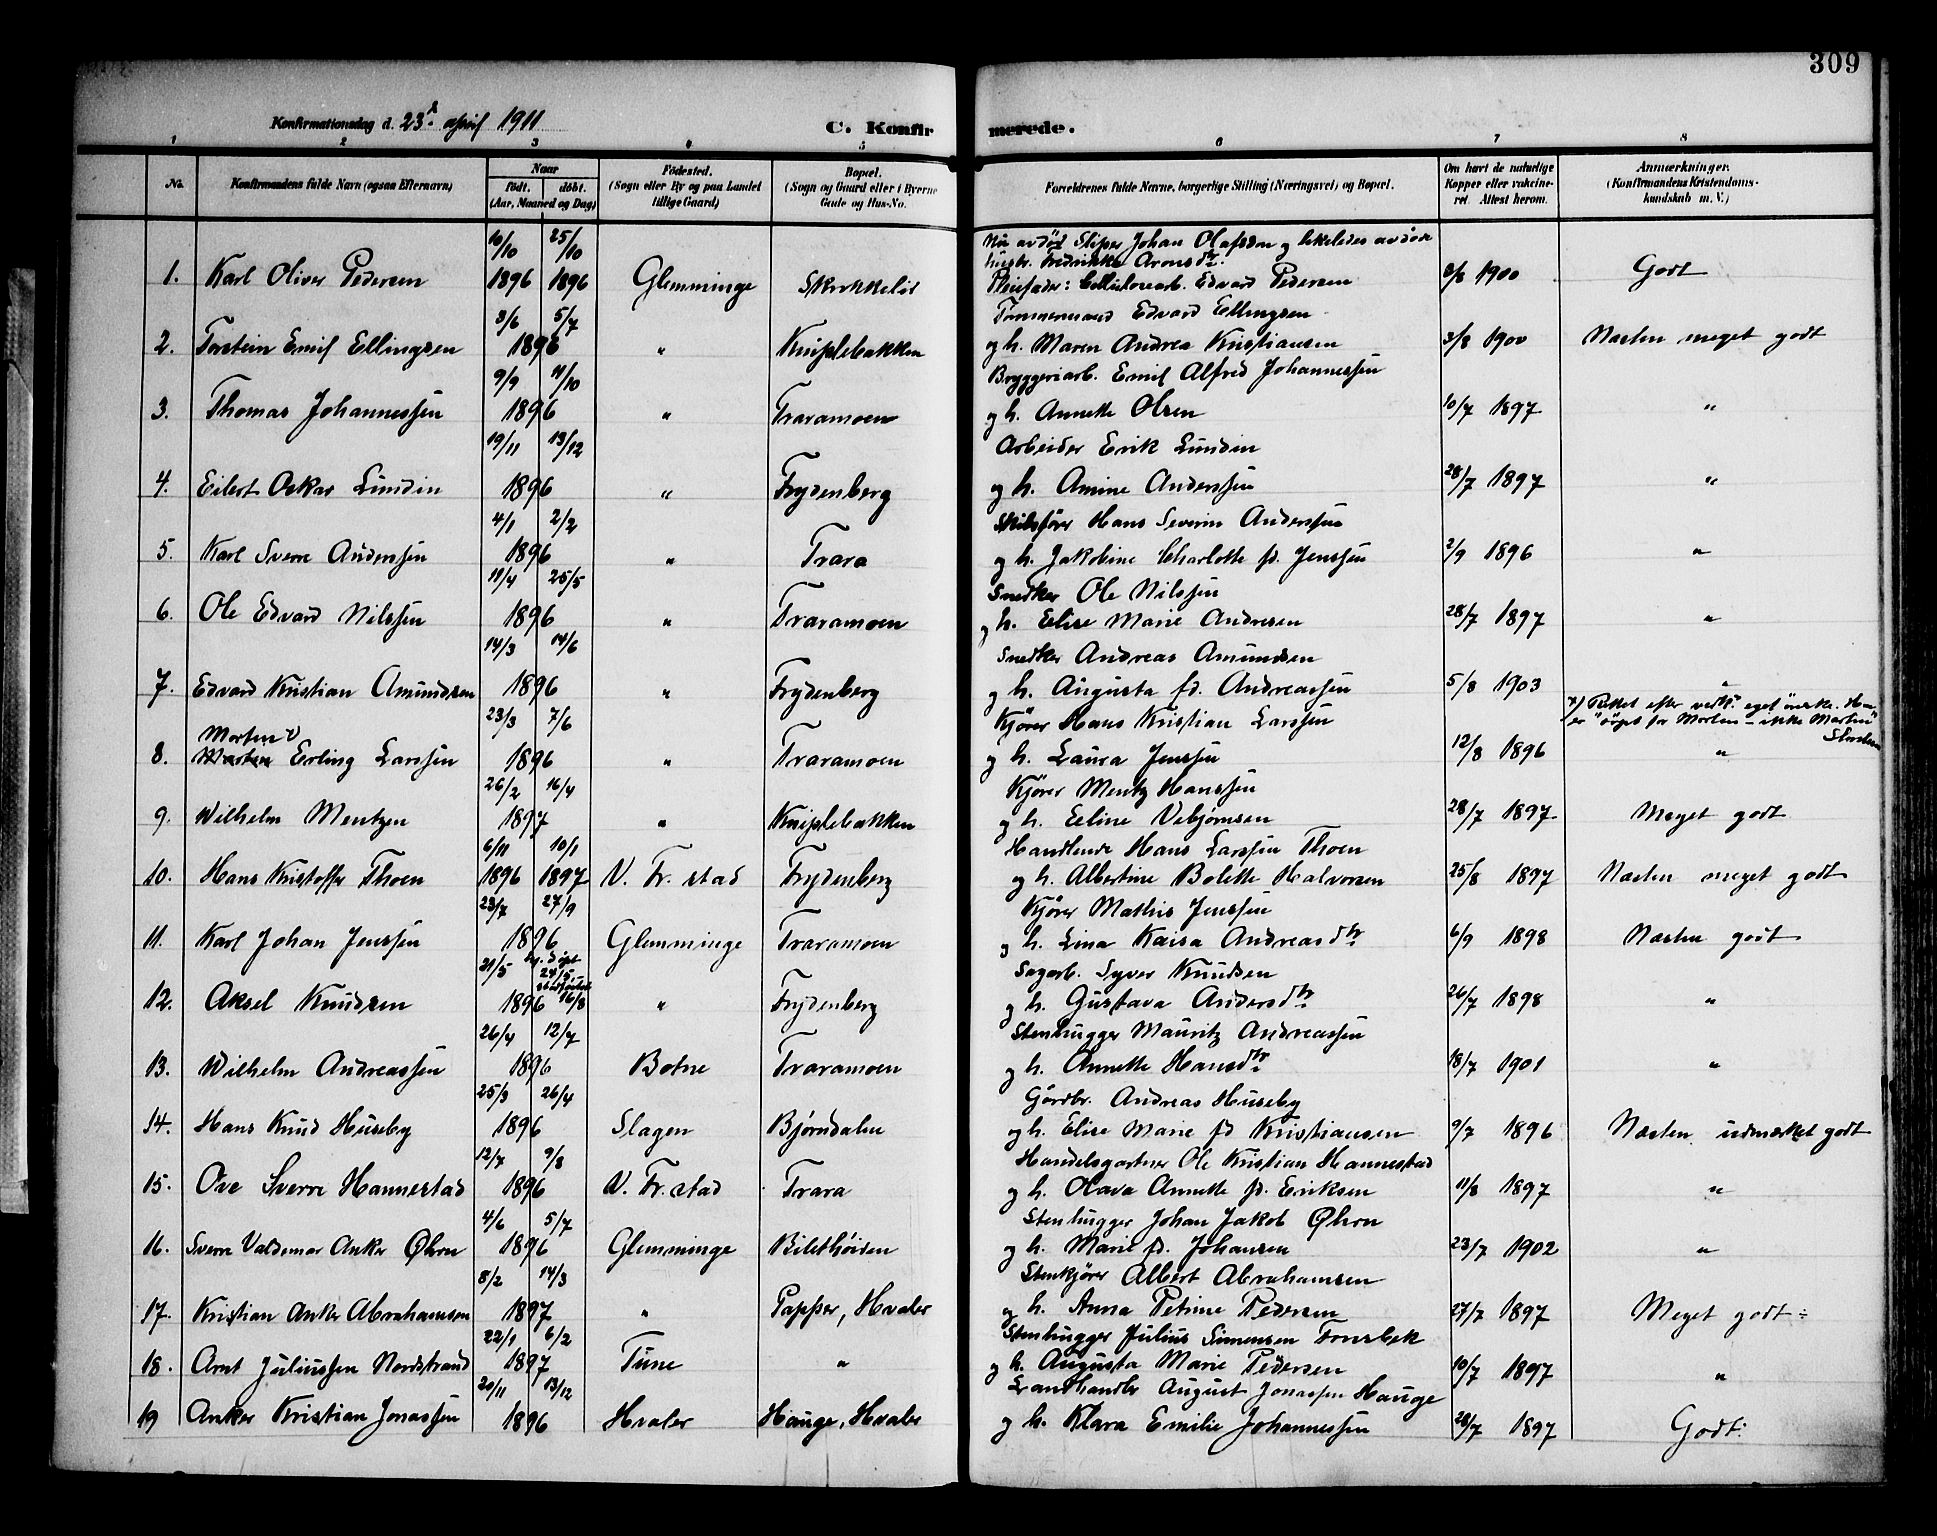 309
Konfirmationsdag d. 23d april 1911
C. Konfirmerede.
1 2 3 4 5 6 7 8
No. Konfirmandens fulde Navn (ogsaa Efternavn) Naar født. døbt. (Aar, Maaned og Dag) Fødested. (Sogn eller By og paa Landet tillige Gaard) Bopæl. (Sogn og Gaard eller i Byerne Gade og Hus-No. Forældrenes fulde Navne, borgerlige Stilling (Næringsvei) og Bopæl. Om havt de naturlige Kopper eller vakcineret. Attest herom. Anmærkninger. (Konfirmandens Kristendomskundskab m. V.)
10/10 25/10 Nu avdød Sliper Johan Olafsson og likeledes avdøde
hustr. Fredrikke Aronsdtr.
1. Karl Oliver Pedersen 1896 1896 Glemminge Pleiefader: Cellulosearb. Edvard Pedersen 8/8 1900 Godt
3/6 5/7 Tømmermand Edvard Ellingsen
2. Torstein Emil Ellingsen 1896 " Kniplebakken og h. Maren Andrea Kristiansen 3/8 1900 Næsten meget godt
9/9 11/10 Bryggeriarb. Emil Alfred Johannessen
3. Thomas Johannessen 1896 " Traramoen og h. Annette Olsen 10/7 1897 "
19/11 13/12 Arbeider Erik Lundin
4. Eilert Oskar Lundin 1896 " Frydenberg og h. Amine Anderssen 28/7 1897 "
4/1 2/2 Skibsfører Hans Severin Anderssen
5. Karl Sverre Anderssen 1896 " Trara og h. Jakobine Charlotte fd. Jenssen 2/9 1896 "
11/4 25/5 Snedker Ole Nilssen
6. Ole Edvard Nilssen 1896 " Traramoen og h. Elise Marie Andresen 28/7 1897 "
14/3 14/6 Snedker Andreas Amundsen
7. Edvard Kristian Amundsen 1896 " Frydenberg og h. Augusta fd. Andreassen 5/8 1903 "
23/3 7/6 Kjører Hans Kristian Larssen
Morten
er døpt for Morten - ikke Martin
8. Martin Erling Larssen 1896 " Traramoen og h. Laura Jenssen 12/8 1896 "
26/2 16/4 Kjører Mentz Hanssen
9. Wilhelm Mentzen 1897 " Kniplebakken og h. Eeline Vebjørnsen 28/7 1897 Meget godt
6/11 10/1 Handlende Hans Larssen Thoen
10. Hans Kristoffer Thoen 1896 1897 V. Fr. stad Frydenberg og h. Albertine Bolette Halvorsen 25/8 1897 Næsten meget godt
23/7 27/9 Kjører Mathis Jenssen
11. Karl Johan Jenssen 1896 Glemminge Traramoen og h. Lina Kaisa Andreasdtr 6/9 1898 Næsten godt
21/5 døpt 24/5 Sagarb. Syver Knudsen
12. Aksel Knudsen 1896 16/8 " Frydenberg og h. Gustava Andersdtr 26/7 1898 "
26/4 12/7 Stenhugger Mauritz Andreassen
13. Wilhelm Andreassen 1896 Botne Traramoen og h. Annette Hansdtr 18/7 1901 "
25/3 26/4 Gårdbr. Andreas Huseby
14. Hans Knud Huseby 1896 Slagen Bjørndalen og h. Elise Marie fd Kristiansen 9/7 1896 Næsten udmærket godt
12/7 9/8 Handelsgartner Ole Kristian Hannestad
15. Ove Sverre Hannestad 1896 V. Fr. stad Trara og h. Olava Annette fd. Eriksen 11/8 1897 "
4/6 5/7 Stenhugger Johan Jakob Øhrn
16. Sverre Valdemar Anker Øhrn 1896 Glemminge og h. Marie fd. Johansen 23/7 1902 "
8/2 14/3 Stenkjører Albert Abrahamsen
17. Kristian Anker Abrahamsen 1897 " Papper, Hvaler og h. Anna Petrine Pedersen 27/7 1897 Meget godt
22/1 6/2 Stenhugger Julius Simensen
18. Arnt Juliussen Nordstrand 1897 Tune " og h. Augusta Marie Pedersen 10/7 1897 "
20/11 13/12 Landhandler August Jonassen Hauge
19 Anker Kristian Jonassen 1896 Hvaler Hauge, Hvaler og h. Klara Emilie Johannessen 28/7 1897 Godt